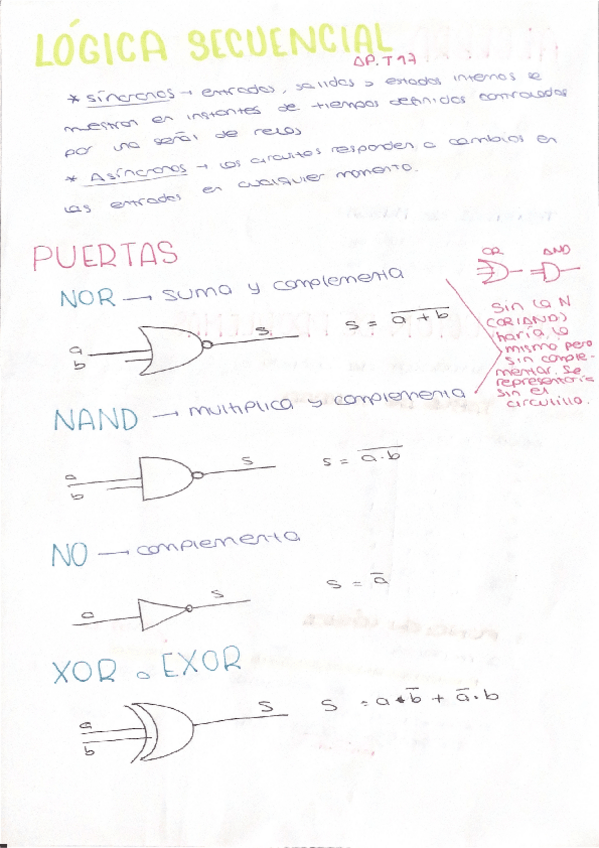 LÓGICA SECUENCIAL
AP. T17
* síncronos → entradas, salidas y estados internos se
muestran en instantes de tiempos definidos controlados
por una señal de reloj
* Asíncronos → Los circuitos responden a cambios en
las entradas en cualquier momento.
PUERTAS
OR AND
NOR → suma y complementa
a
b
s
s = \overline{a + b}
Sin la N
(OR/AND)
haría lo
mismo pero
sin comple-
mentar. Se
representaría
sin el
circulillo.
NAND → multiplica y complementa
a
b
s
s = \overline{a · b}
NO → complementa
a
s
s = \overline{a}
XOR o EXOR
a
b
s
s = a · \overline{b} + \overline{a} · b